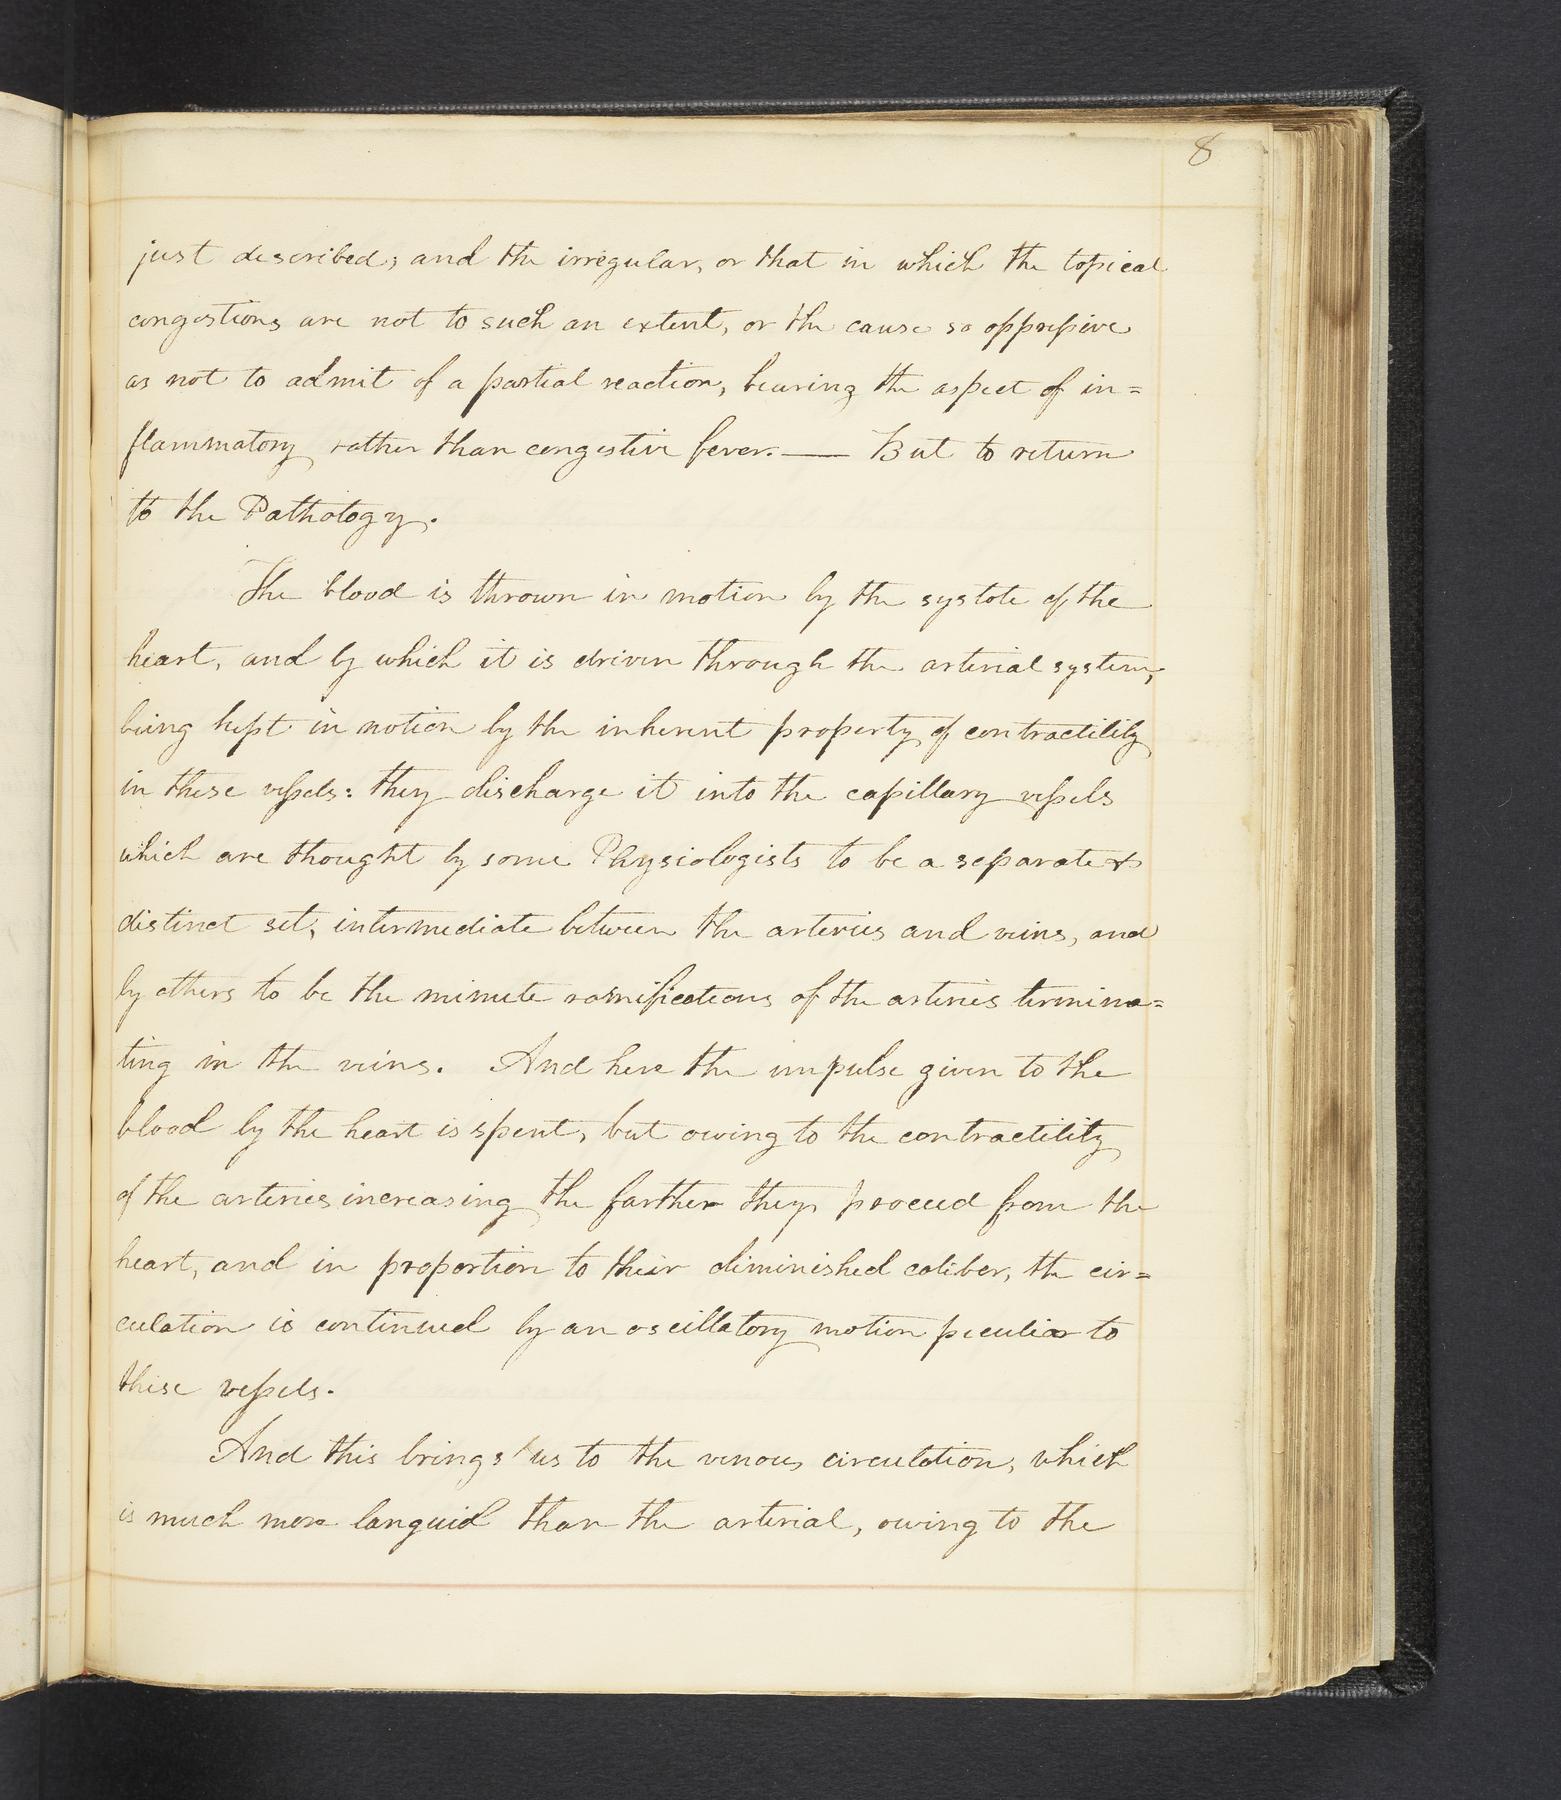 8
just described; and the irregular, or that in which the topical
congestions are not to such an extent, or the cause so oppressive
as not to admit of a partial reaction, bearing the aspect of in=
flammatory rather than congestive fever. — But to return
to the Pathology.
The blood is thrown in motion by the systole of the
heart, and by which it is driven through the arterial system,
being kept in motion by the inherent property of contractility
in these vessels: they discharge it into the capillary vessels
which are thought by some Physiologists to be a separate &
distinct set, intermediate between the arteries and veins, and
by others to be the minute ramifications of the arteries termina=
ting in the veins. And here the impulse given to the
blood by the heart is spent, but owing to the contractility
of the arteries increasing the farther they proceed from the
heart, and in proportion to their diminished caliber, the cir=
culation is continued by an oscillatory motion peculiar to
these vessels.
And this brings us to the venous circulation, which
is much more languid than the arterial, owing to the